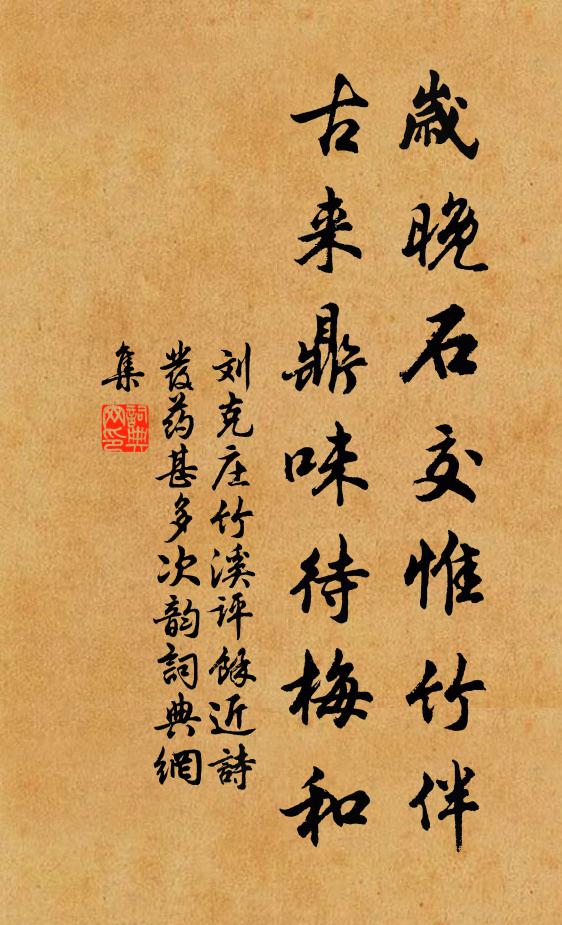 歲晚石交惟竹伴
古来鼎味待梅和
刘克庄竹溪评馀近詩
發药甚多次韵詞典網
集
詞典網印